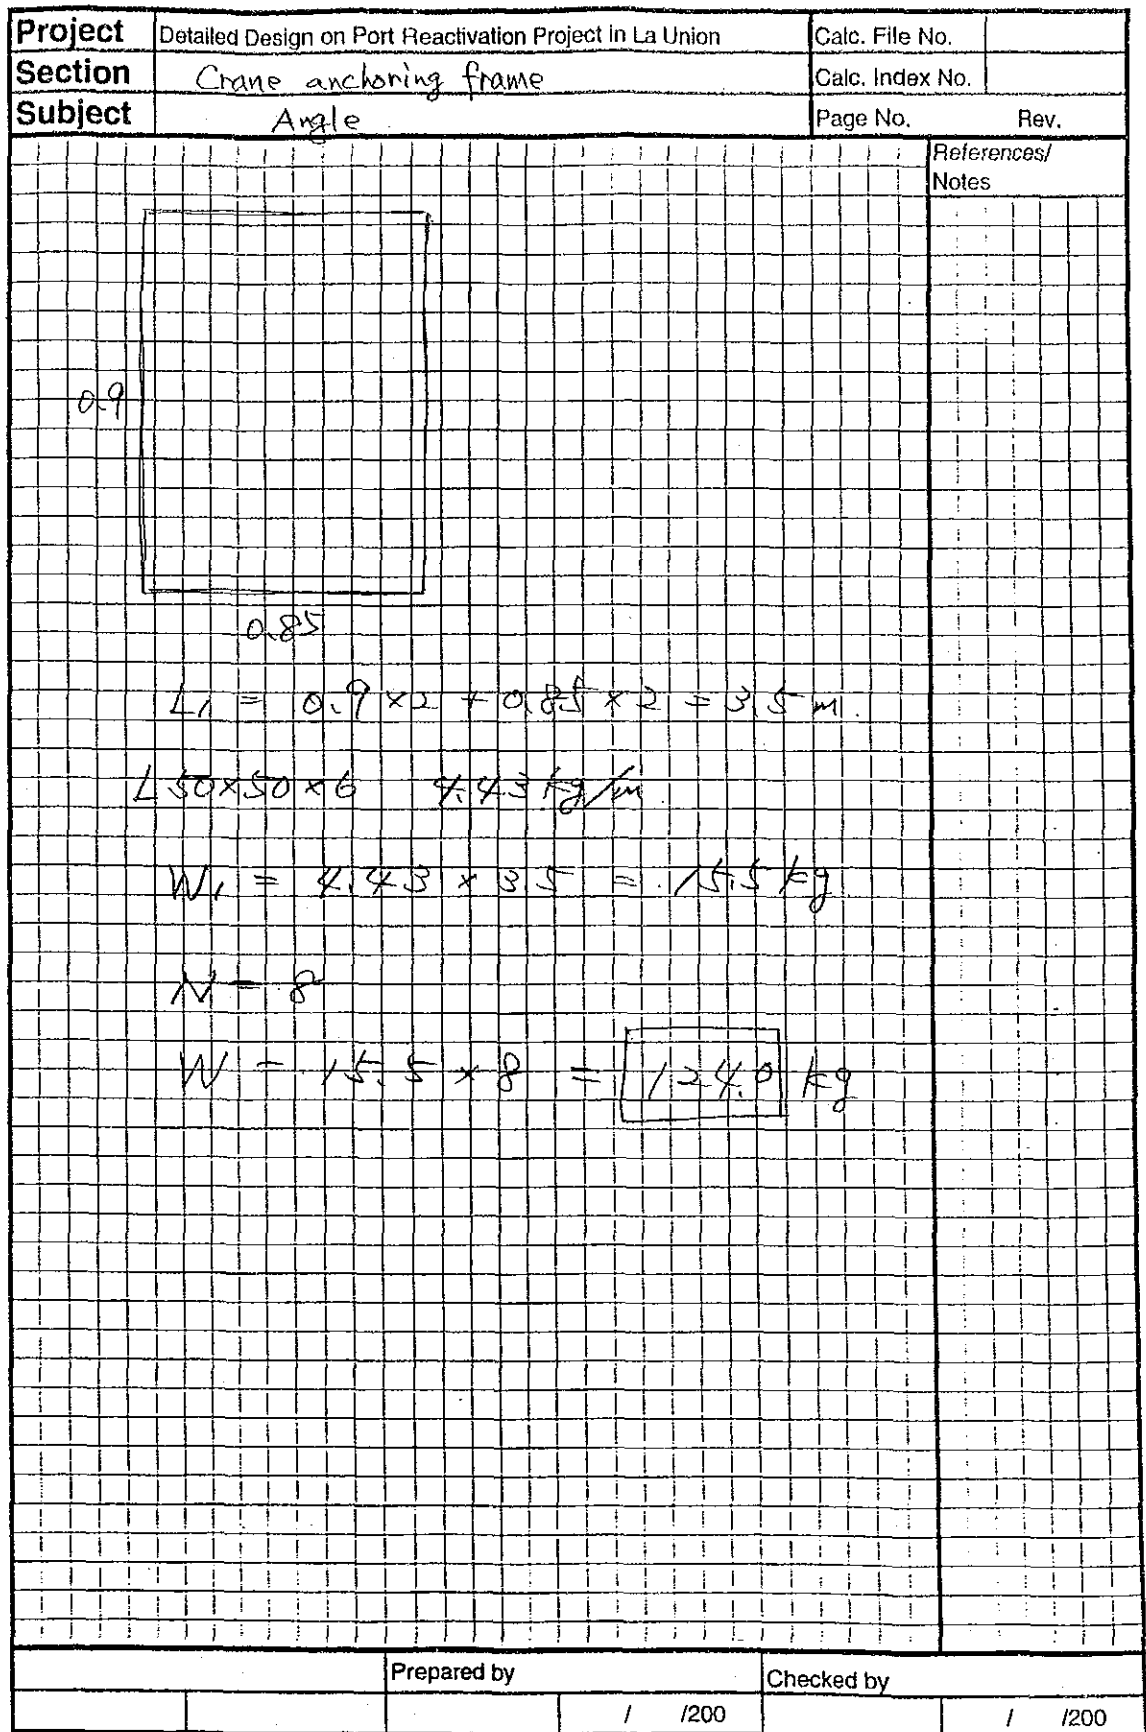 Project Detailed Design on Port Reactivation Project in La Union Calc. File No.
Section Crane anchoring frame Calc. Index No.
Subject Angle Page No. Rev.
References/
Notes
0.9
0.85
L1 = 0.9 × 2 + 0.85 × 2 = 3.5 m
L 50×50×6 4.43 kg/m
W1 = 4.43 × 3.5 = 15.5 kg
N = 8
W = 15.5 × 8 = 124.0 kg
Prepared by Checked by
/ /200 / /200